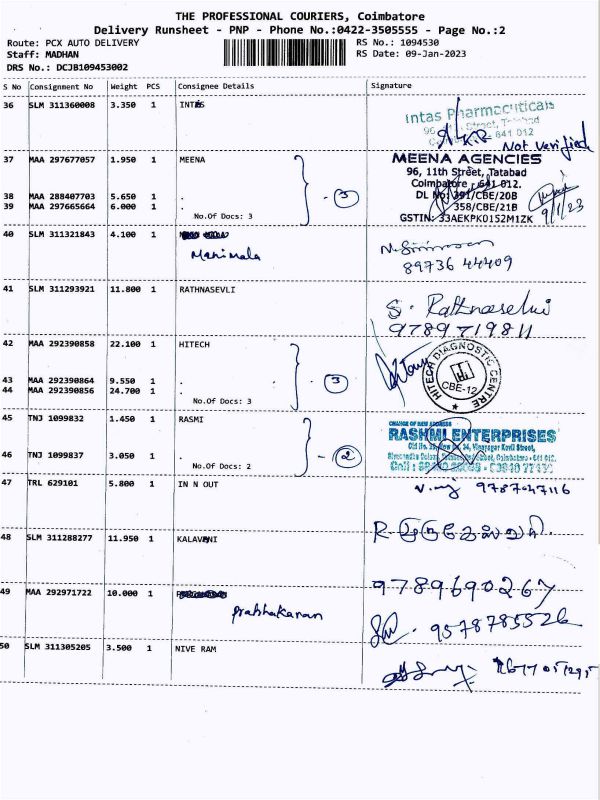 THE PROFESSIONAL COURIERS, Coimbatore
Delivery Runsheet - PNP - Phone No.:0422-3505555 - Page No.:2
Route: PCX AUTO DELIVERY
RS No.: 1094530
Staff: MADHAN
RS Date: 09-Jan-2023
DRS No.: DCJB109453002
S No Consignment No Weight PCS Consignee Details Signature
36 SLM 311360008 3.350 1 INTAS
Intas Pharmaceuticals
641 012
Not verified
37 MAA 297677057 1.950 1 MEENA
MEENA AGENCIES
96, 11th Street, Tatabad
Coimbatore - 641 012.
38 MAA 288407703 5.650 1 .
39 MAA 297665664 6.000 1 .
3
DL No: 391/CBE/20B
358/CBE/21B
9/1/23
No.Of Docs: 3
GSTIN: 33AEKPK0152M1ZK
40 SLM 311321843 4.100 1
Manimala
89736 44409
41 SLM 311293921 11.800 1 RATHNASEVLI
S. Rathnaselvi
9789719811
42 MAA 292390858 22.100 1 HITECH
HITECH DIAGNOSTIC CENTRE
CBE-12
43 MAA 292390864 9.550 1 .
44 MAA 292390856 24.700 1 .
3
No.Of Docs: 3
45 TNJ 1099832 1.450 1 RASMI
CHANGE OF NEW ADDRESS
RASHMI ENTERPRISES
46 TNJ 1099837 3.050 1 .
2
No.Of Docs: 2
47 TRL 629101 5.800 1 IN N OUT
9787047116
48 SLM 311288277 11.950 1 KALAVANI
9789690267
49 MAA 292971722 10.000 1
Prabhakaran
9578785526
50 SLM 311305205 3.500 1 NIVE RAM